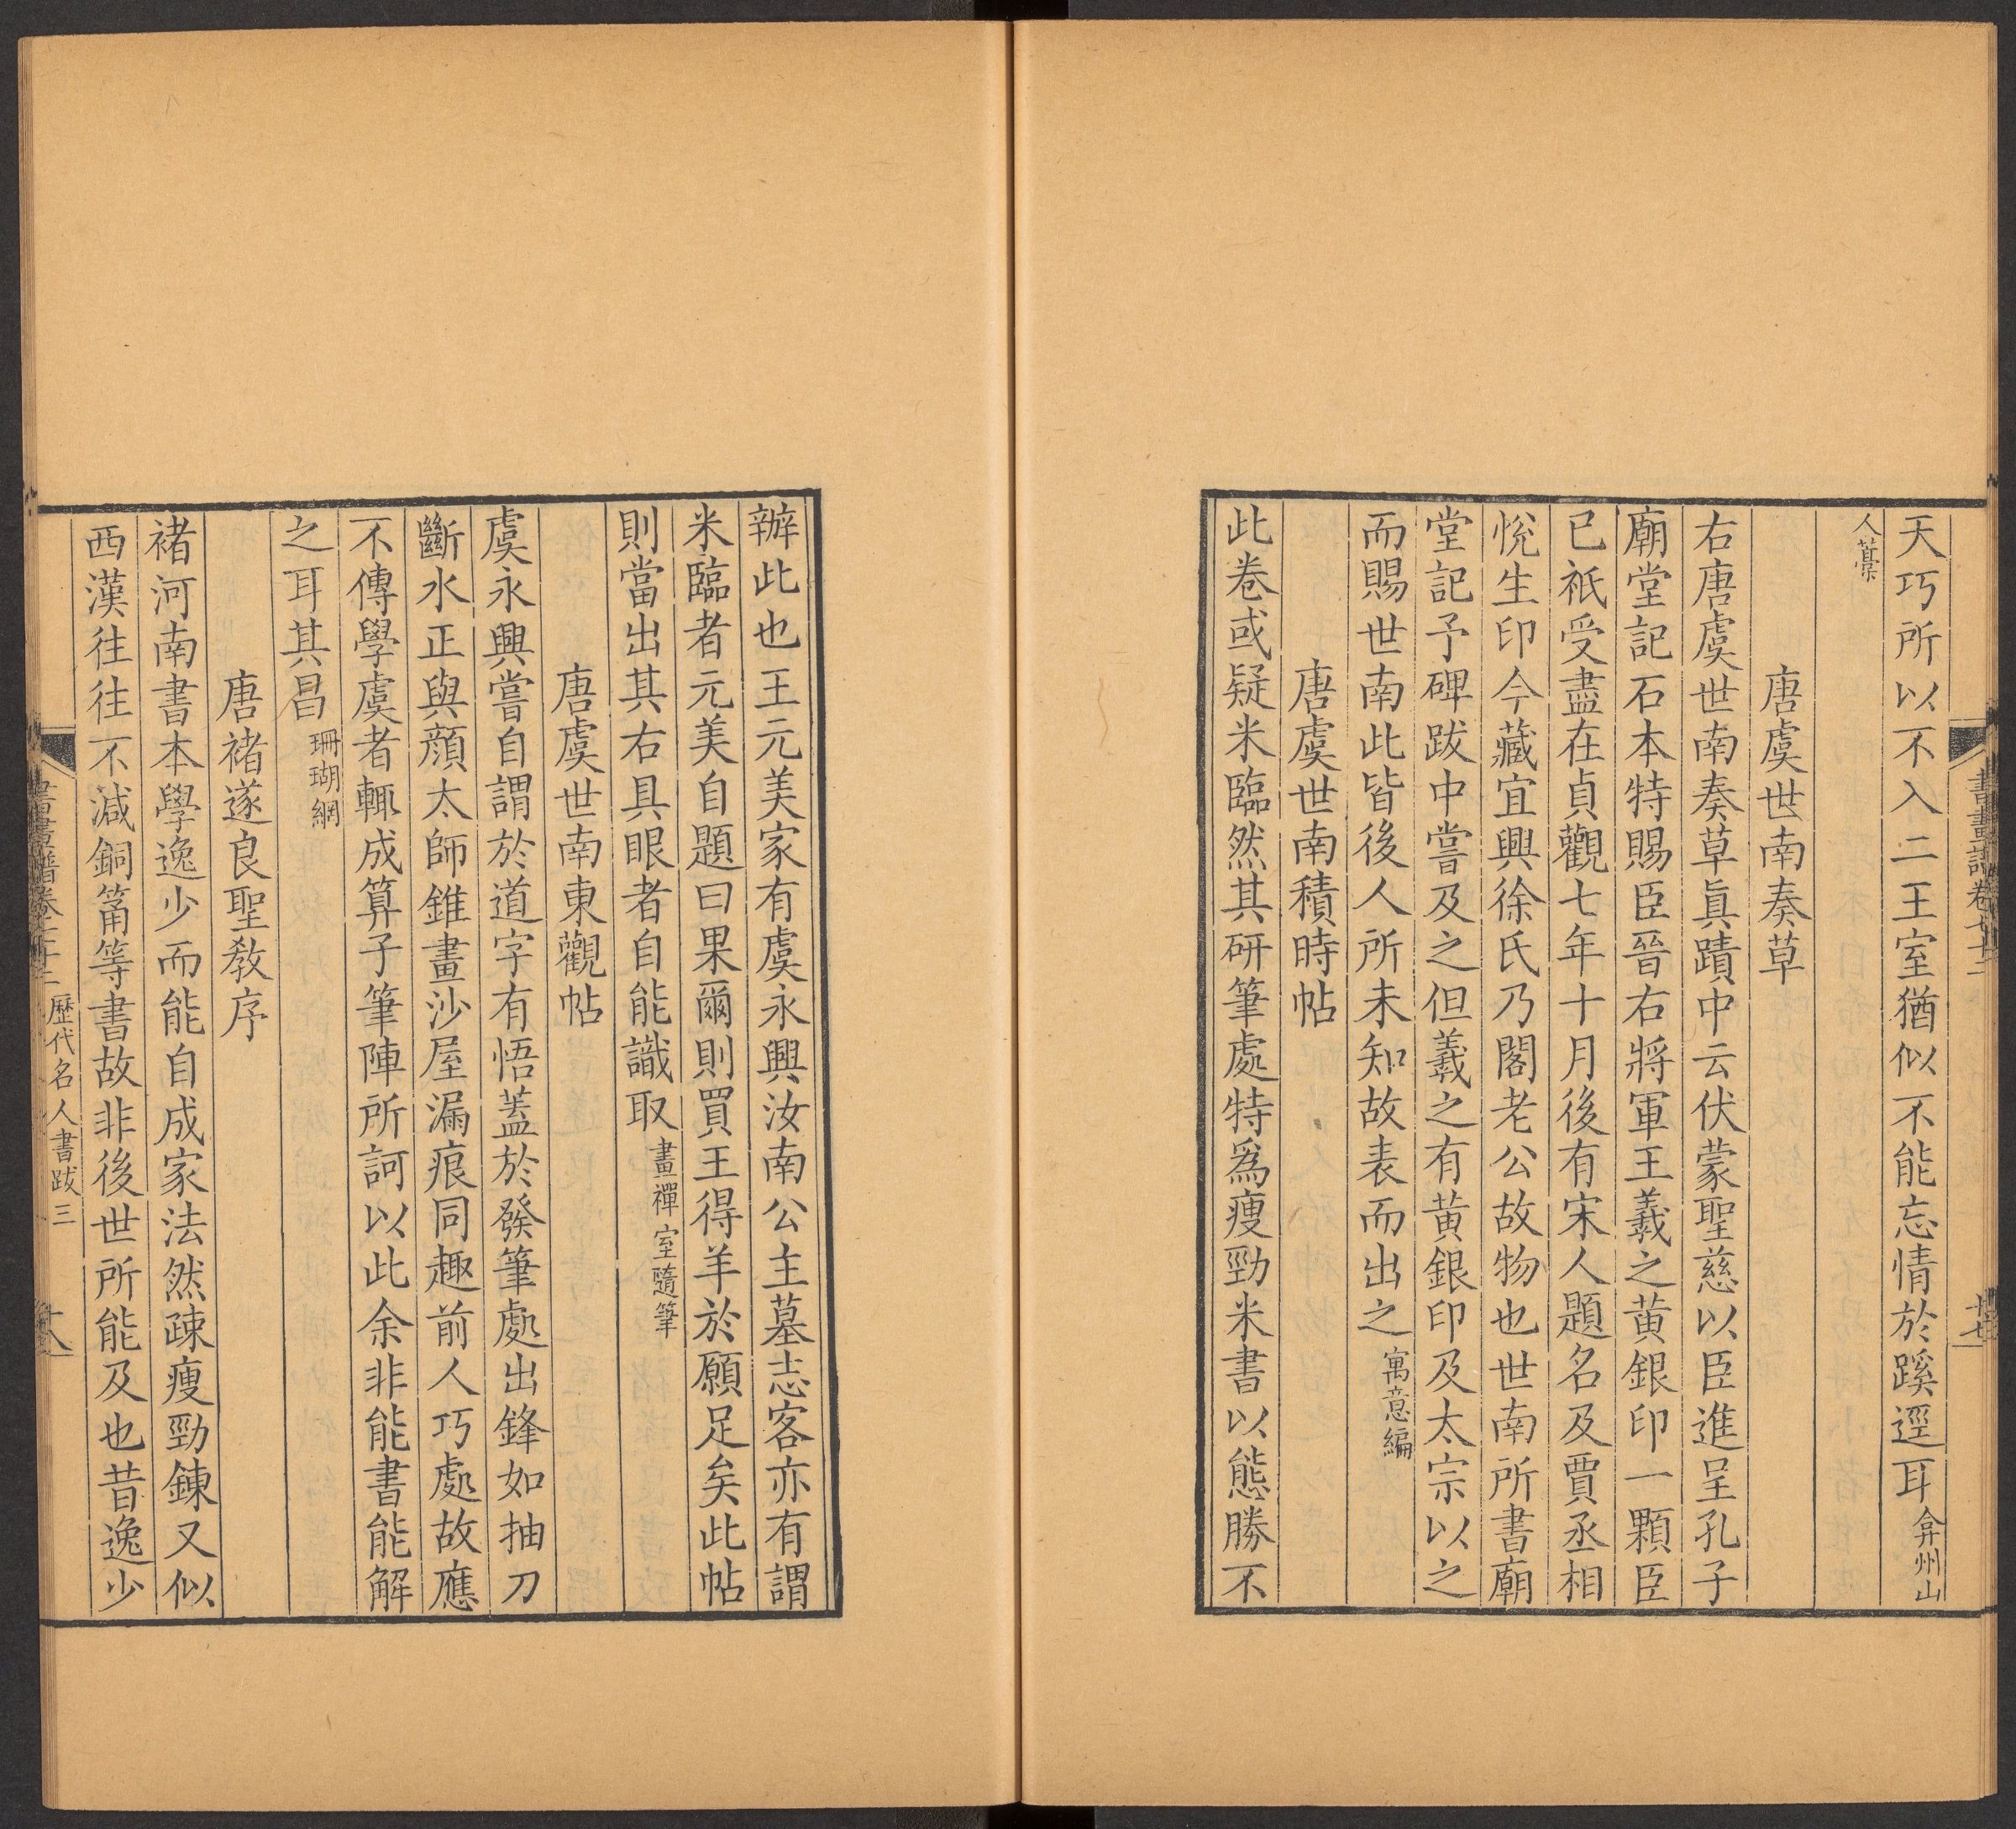 書畫譜卷七十二
十七
天巧所以不入二王室猶似不能忘情於蹊逕耳弇州山
人藁
唐虞世南奏草
右唐虞世南奏草眞蹟中云伏蒙聖慈以臣進呈孔子
廟堂記石本特賜臣晉右將軍王羲之黃銀印一顆臣
已祇受盡在貞觀七年十月後有宋人題名及賈丞相
悅生印今藏宜興徐氏乃閣老公故物也世南所書廟
堂記予碑跋中嘗及之但羲之有黃銀印及太宗以之
而賜世南此皆後人所未知故表而出之寓意編
唐虞世南積時帖
此卷或疑米臨然其研筆處特爲瘦勁米書以態勝不
辦此也王元美家有虞永興汝南公主墓志客亦有謂
米臨者元美自題曰果爾則買王得羊於願足矣此帖
則當出其右具眼者自能識取畫禪室隨筆
唐虞世南東觀帖
虞永興嘗自謂於道字有悟蓋於發筆處出鋒如抽刀
斷水正與顔太師錐畫沙屋漏痕同趣前人巧處故應
不傳學虞者輒成算子筆陣所訶以此余非能書能解
之耳其昌珊瑚網
唐褚遂良聖敎序
褚河南書本學逸少而能自成家法然疎瘦勁鍊又似
西漢往往不減銅筩等書故非後世所能及也昔逸少
書畫譜卷七十二
歷代名人書跋三
十八